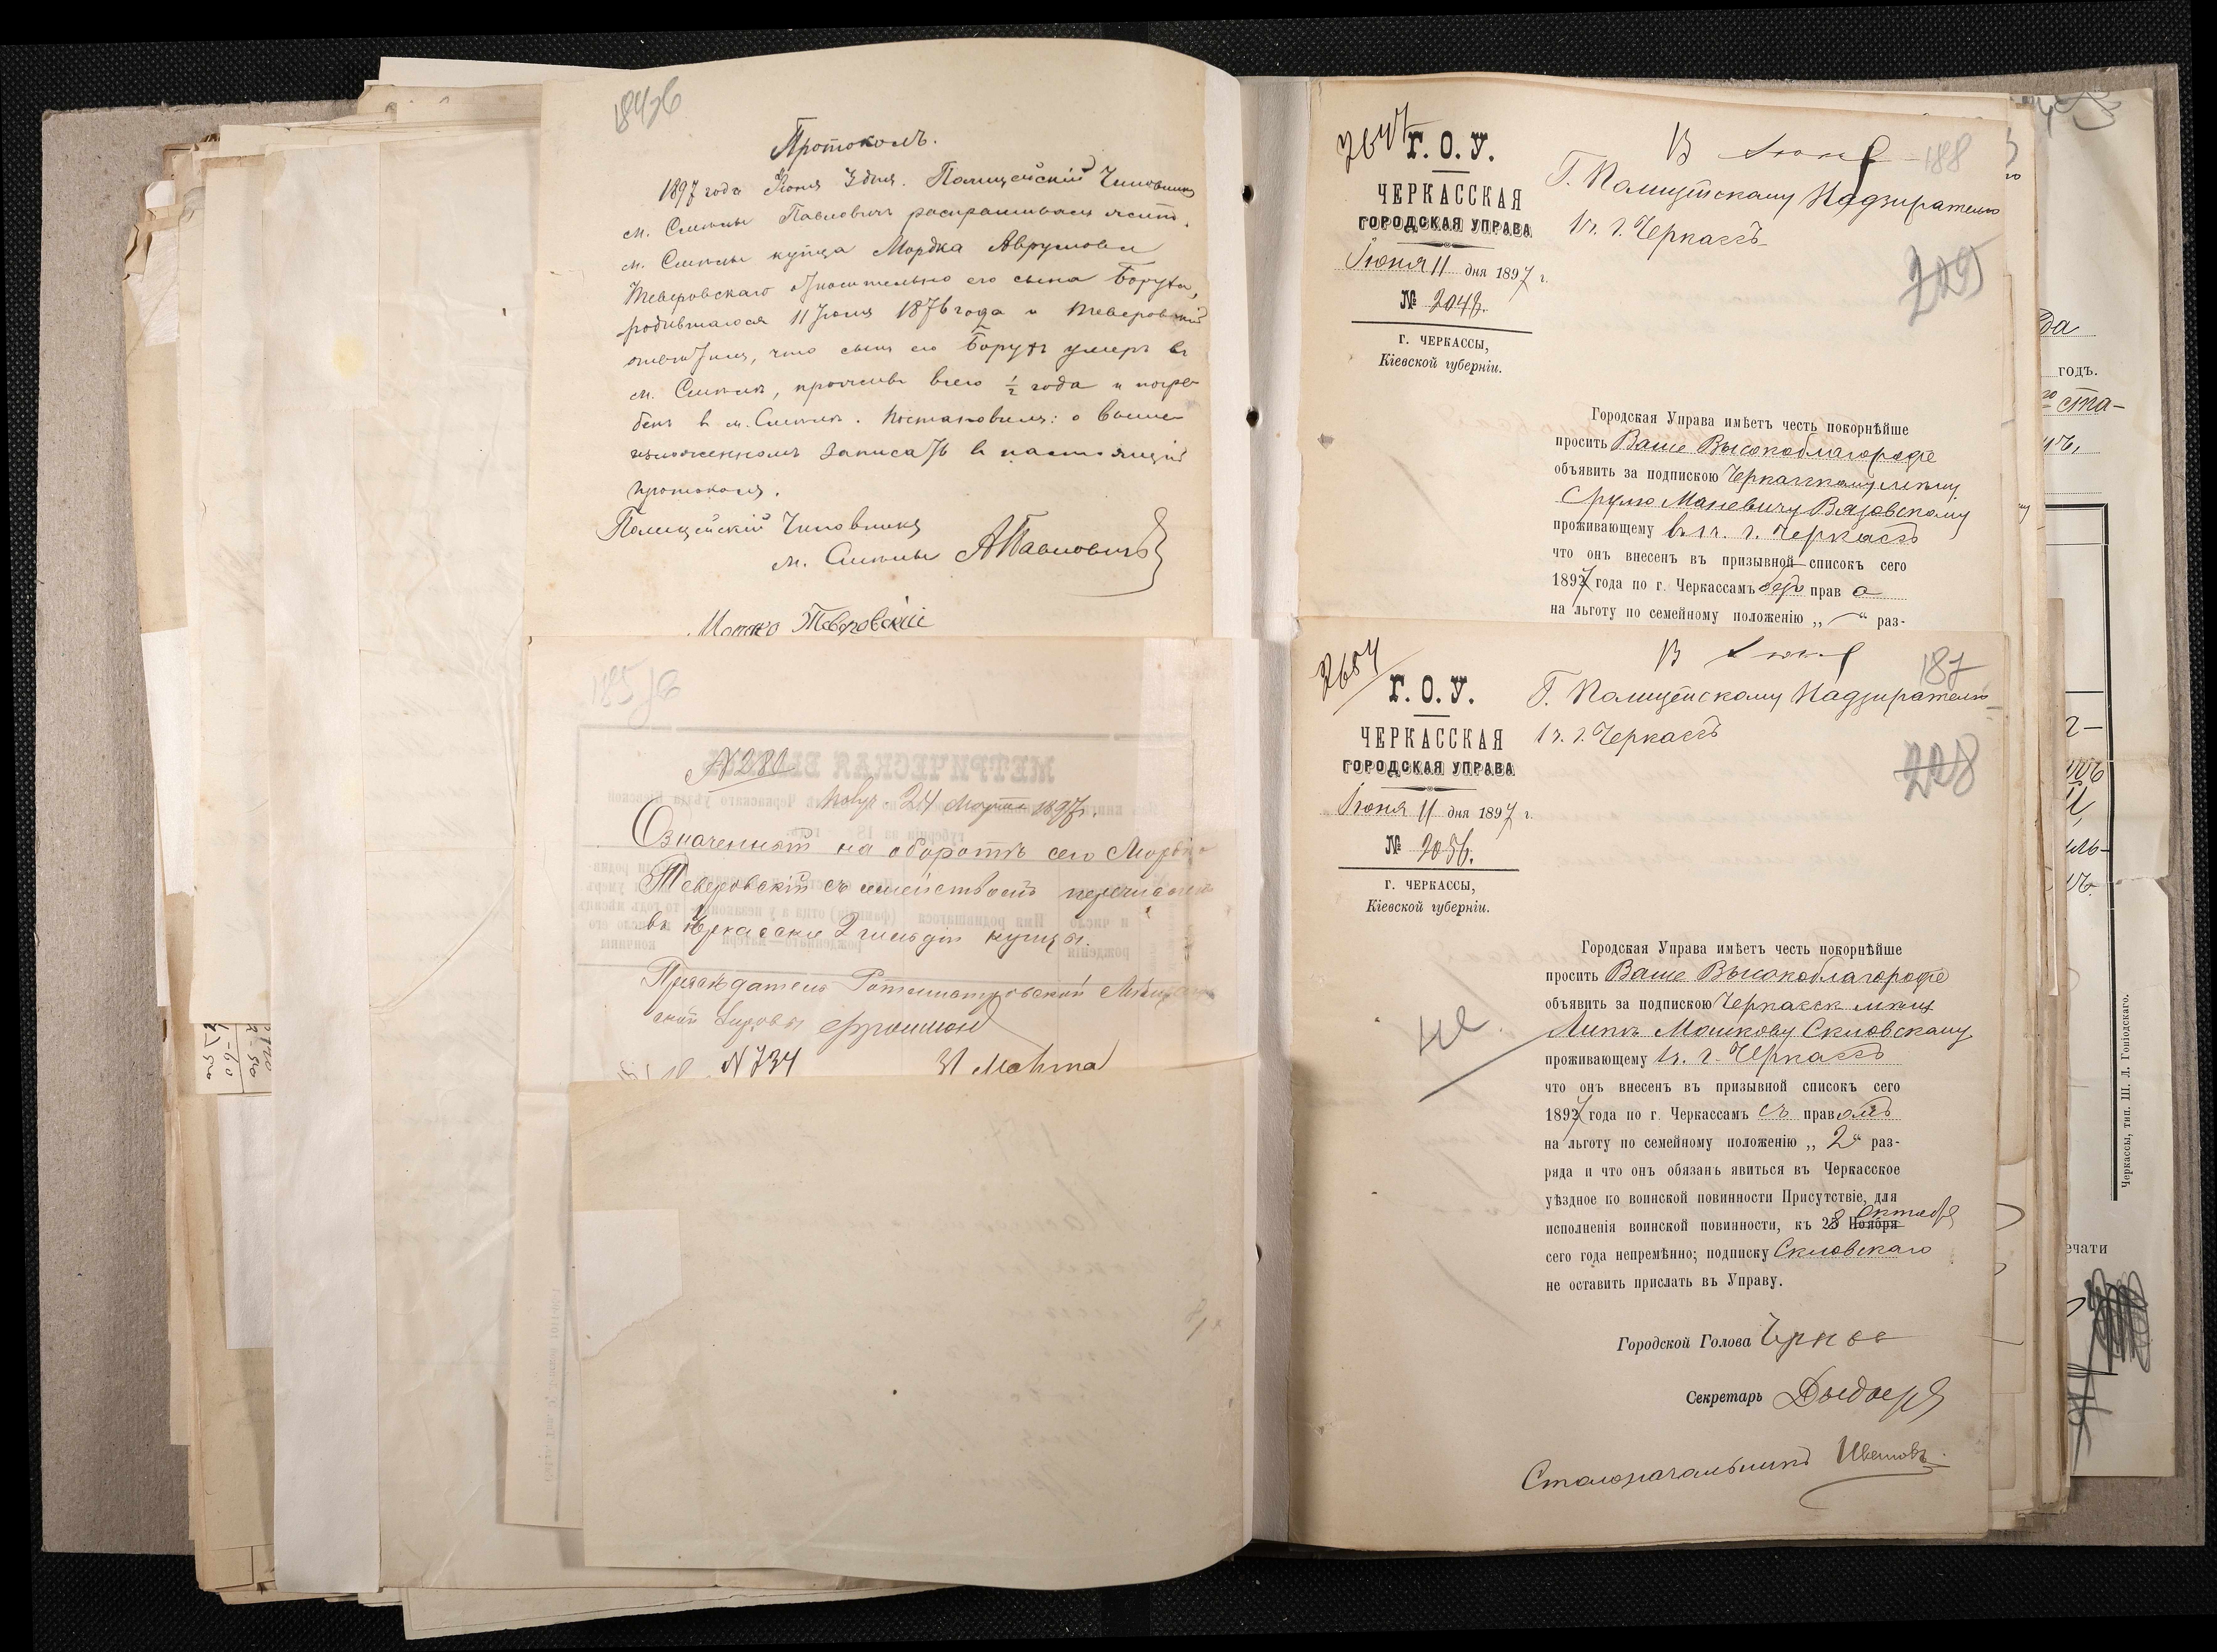 184об
Протоколъ.
1897 года Іюня 3 дня. Полицейскій Чиновникъ
м. Смѣлы Павловичъ распрашивалъ жит.
м. Смѣлы купца Мордка Аврумова
Тверовскаго относительно его сына Боруха,
родившагося 11 Іюня 1876 года и Тверовскій
отвѣтилъ, что сынъ его Борухъ умеръ въ
м. Смѣлѣ, проживъ всего ½ года и погре-
бенъ въ м. Смѣлѣ. Постановилъ: о выше-
изложенномъ записать въ настоящій
протоколъ.
Полицейскій Чиновникъ
м. Смѣлы АПавловичъ
Мордко Тверовскій
185об
№ 280
Получ. 24 Марта 1897 г.
Означенный на оборотѣ сего Мордко
Теверовскій съ семействомъ перечисленъ
въ Черкасскіе 2 гильдіи купцы.
Предсѣдатель Ротмистровской Мѣщан-
ской Управы
№ 734 31 Марта
2647
188
Г. О. У.
13 Іюня
ЧЕРКАССКАЯ
ГОРОДСКАЯ УПРАВА
Г. Полицейскому Надзирателю
1 ч. г. Черкассъ
Іюня 11 дня 1897 г.
№ 2048.
209
г. ЧЕРКАССЫ,
Кіевской губерніи.
Городская Управа имѣетъ честь покорнѣйше
просить Ваше Высокоблагородіе
объявить за подпискою Черкасскому мѣщ.
Срулю Маневичу Вязовскому
проживающему въ 1 ч. г. Черкассъ
что онъ внесенъ въ призывной списокъ сего
1897 года по г. Черкассамъ безъ права
на льготу по семейному положенію „ — “ раз-
2654
187
Г. О. У.
13 Іюня
ЧЕРКАССКАЯ
ГОРОДСКАЯ УПРАВА
Г. Полицейскому Надзирателю
1 ч. г. Черкассъ
Іюня 11 дня 1897 г.
№ 2056.
208
г. ЧЕРКАССЫ,
Кіевской губерніи.
Городская Управа имѣетъ честь покорнѣйше
просить Ваше Высокоблагородіе
объявить за подпискою Черкасск мѣщ
Липѣ Мошкову Скловскому
проживающему 1 ч. г. Черкассъ
что онъ внесенъ въ призывной списокъ сего
1897 года по г. Черкассамъ съ правомъ
на льготу по семейному положенію „ 2 “ раз-
ряда и что онъ обязанъ явиться въ Черкасское
уѣздное по воинской повинности Присутствіе, для
исполненія воинской повинности, къ 28 Ноября Октября
сего года непремѣнно; подписку Скловскаго
не оставить прислать въ Управу.
Городской Голова
Секретарь
Столоначальникъ Ивановъ
да
годъ.
го ста-
ечати
Черкассы, тип. Ш. Л. Гоніодскаго.